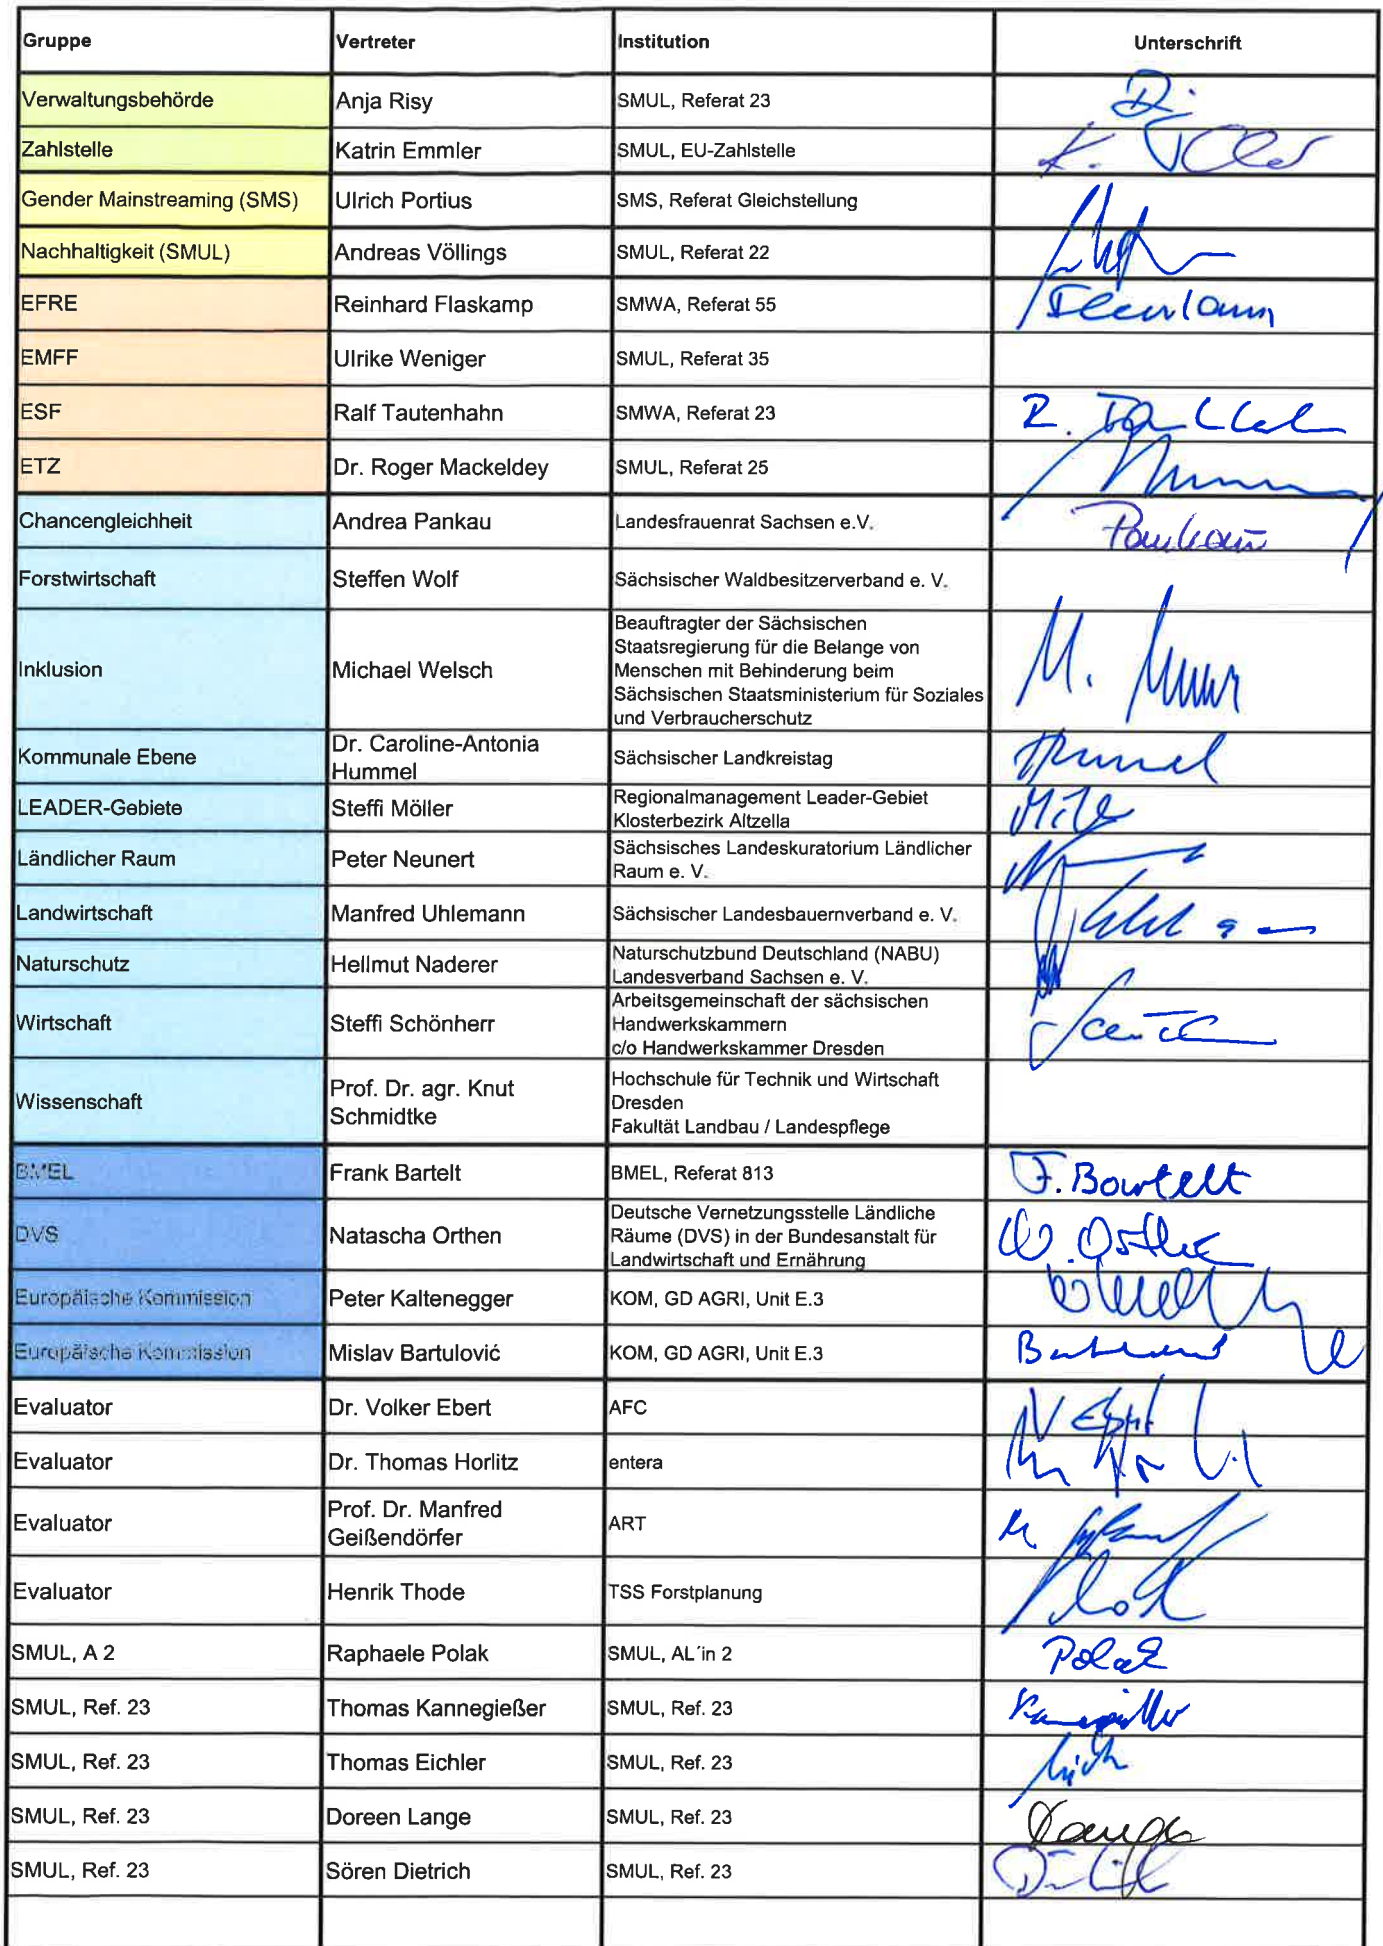 Gruppe Vertreter Institution Unterschrift
Verwaltungsbehörde Anja Risy SMUL, Referat 23
Zahlstelle Katrin Emmler SMUL, EU-Zahlstelle K.
Gender Mainstreaming (SMS) Ulrich Portius SMS, Referat Gleichstellung
Nachhaltigkeit (SMUL) Andreas Völlings SMUL, Referat 22
EFRE Reinhard Flaskamp SMWA, Referat 55
EMFF Ulrike Weniger SMUL, Referat 35
ESF Ralf Tautenhahn SMWA, Referat 23 R.
ETZ Dr. Roger Mackeldey SMUL, Referat 25
Chancengleichheit Andrea Pankau Landesfrauenrat Sachsen e.V. Pankau
Forstwirtschaft Steffen Wolf Sächsischer Waldbesitzerverband e. V.
Beauftragter der Sächsischen
Staatsregierung für die Belange von
Inklusion Michael Welsch Menschen mit Behinderung beim M.
Sächsischen Staatsministerium für Soziales
und Verbraucherschutz
Kommunale Ebene Dr. Caroline-Antonia Sächsischer Landkreistag Hummel
Hummel
LEADER-Gebiete Steffi Möller Regionalmanagement Leader-Gebiet
Klosterbezirk Altzella
Ländlicher Raum Peter Neunert Sächsisches Landeskuratorium Ländlicher
Raum e. V.
Landwirtschaft Manfred Uhlemann Sächsischer Landesbauernverband e. V.
Naturschutz Hellmut Naderer Naturschutzbund Deutschland (NABU)
Landesverband Sachsen e. V.
Arbeitsgemeinschaft der sächsischen
Wirtschaft Steffi Schönherr Handwerkskammern
c/o Handwerkskammer Dresden
Hochschule für Technik und Wirtschaft
Wissenschaft Prof. Dr. agr. Knut Dresden
Schmidtke Fakultät Landbau / Landespflege
BMEL Frank Bartelt BMEL, Referat 813 F. Bartelt
Deutsche Vernetzungsstelle Ländliche
DVS Natascha Orthen Räume (DVS) in der Bundesanstalt für
Landwirtschaft und Ernährung
Europäische Kommission Peter Kaltenegger KOM, GD AGRI, Unit E.3
Europäische Kommission Mislav Bartulović KOM, GD AGRI, Unit E.3
Evaluator Dr. Volker Ebert AFC V Ebert
Evaluator Dr. Thomas Horlitz entera
Evaluator Prof. Dr. Manfred ART
Geißendörfer
Evaluator Henrik Thode TSS Forstplanung
SMUL, A 2 Raphaele Polak SMUL, AL´in 2 Polak
SMUL, Ref. 23 Thomas Kannegießer SMUL, Ref. 23
SMUL, Ref. 23 Thomas Eichler SMUL, Ref. 23
SMUL, Ref. 23 Doreen Lange SMUL, Ref. 23 Lange
SMUL, Ref. 23 Sören Dietrich SMUL, Ref. 23